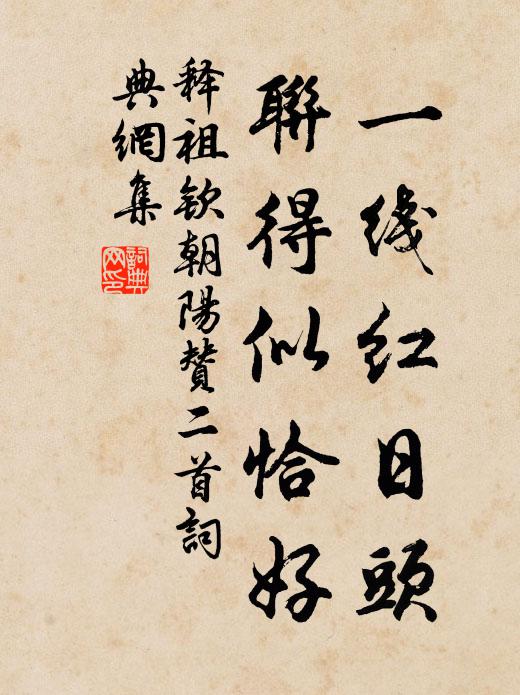 一线红日頭
聯得似恰好
释祖钦朝陽贊二首詞
典網集
詞典
网印